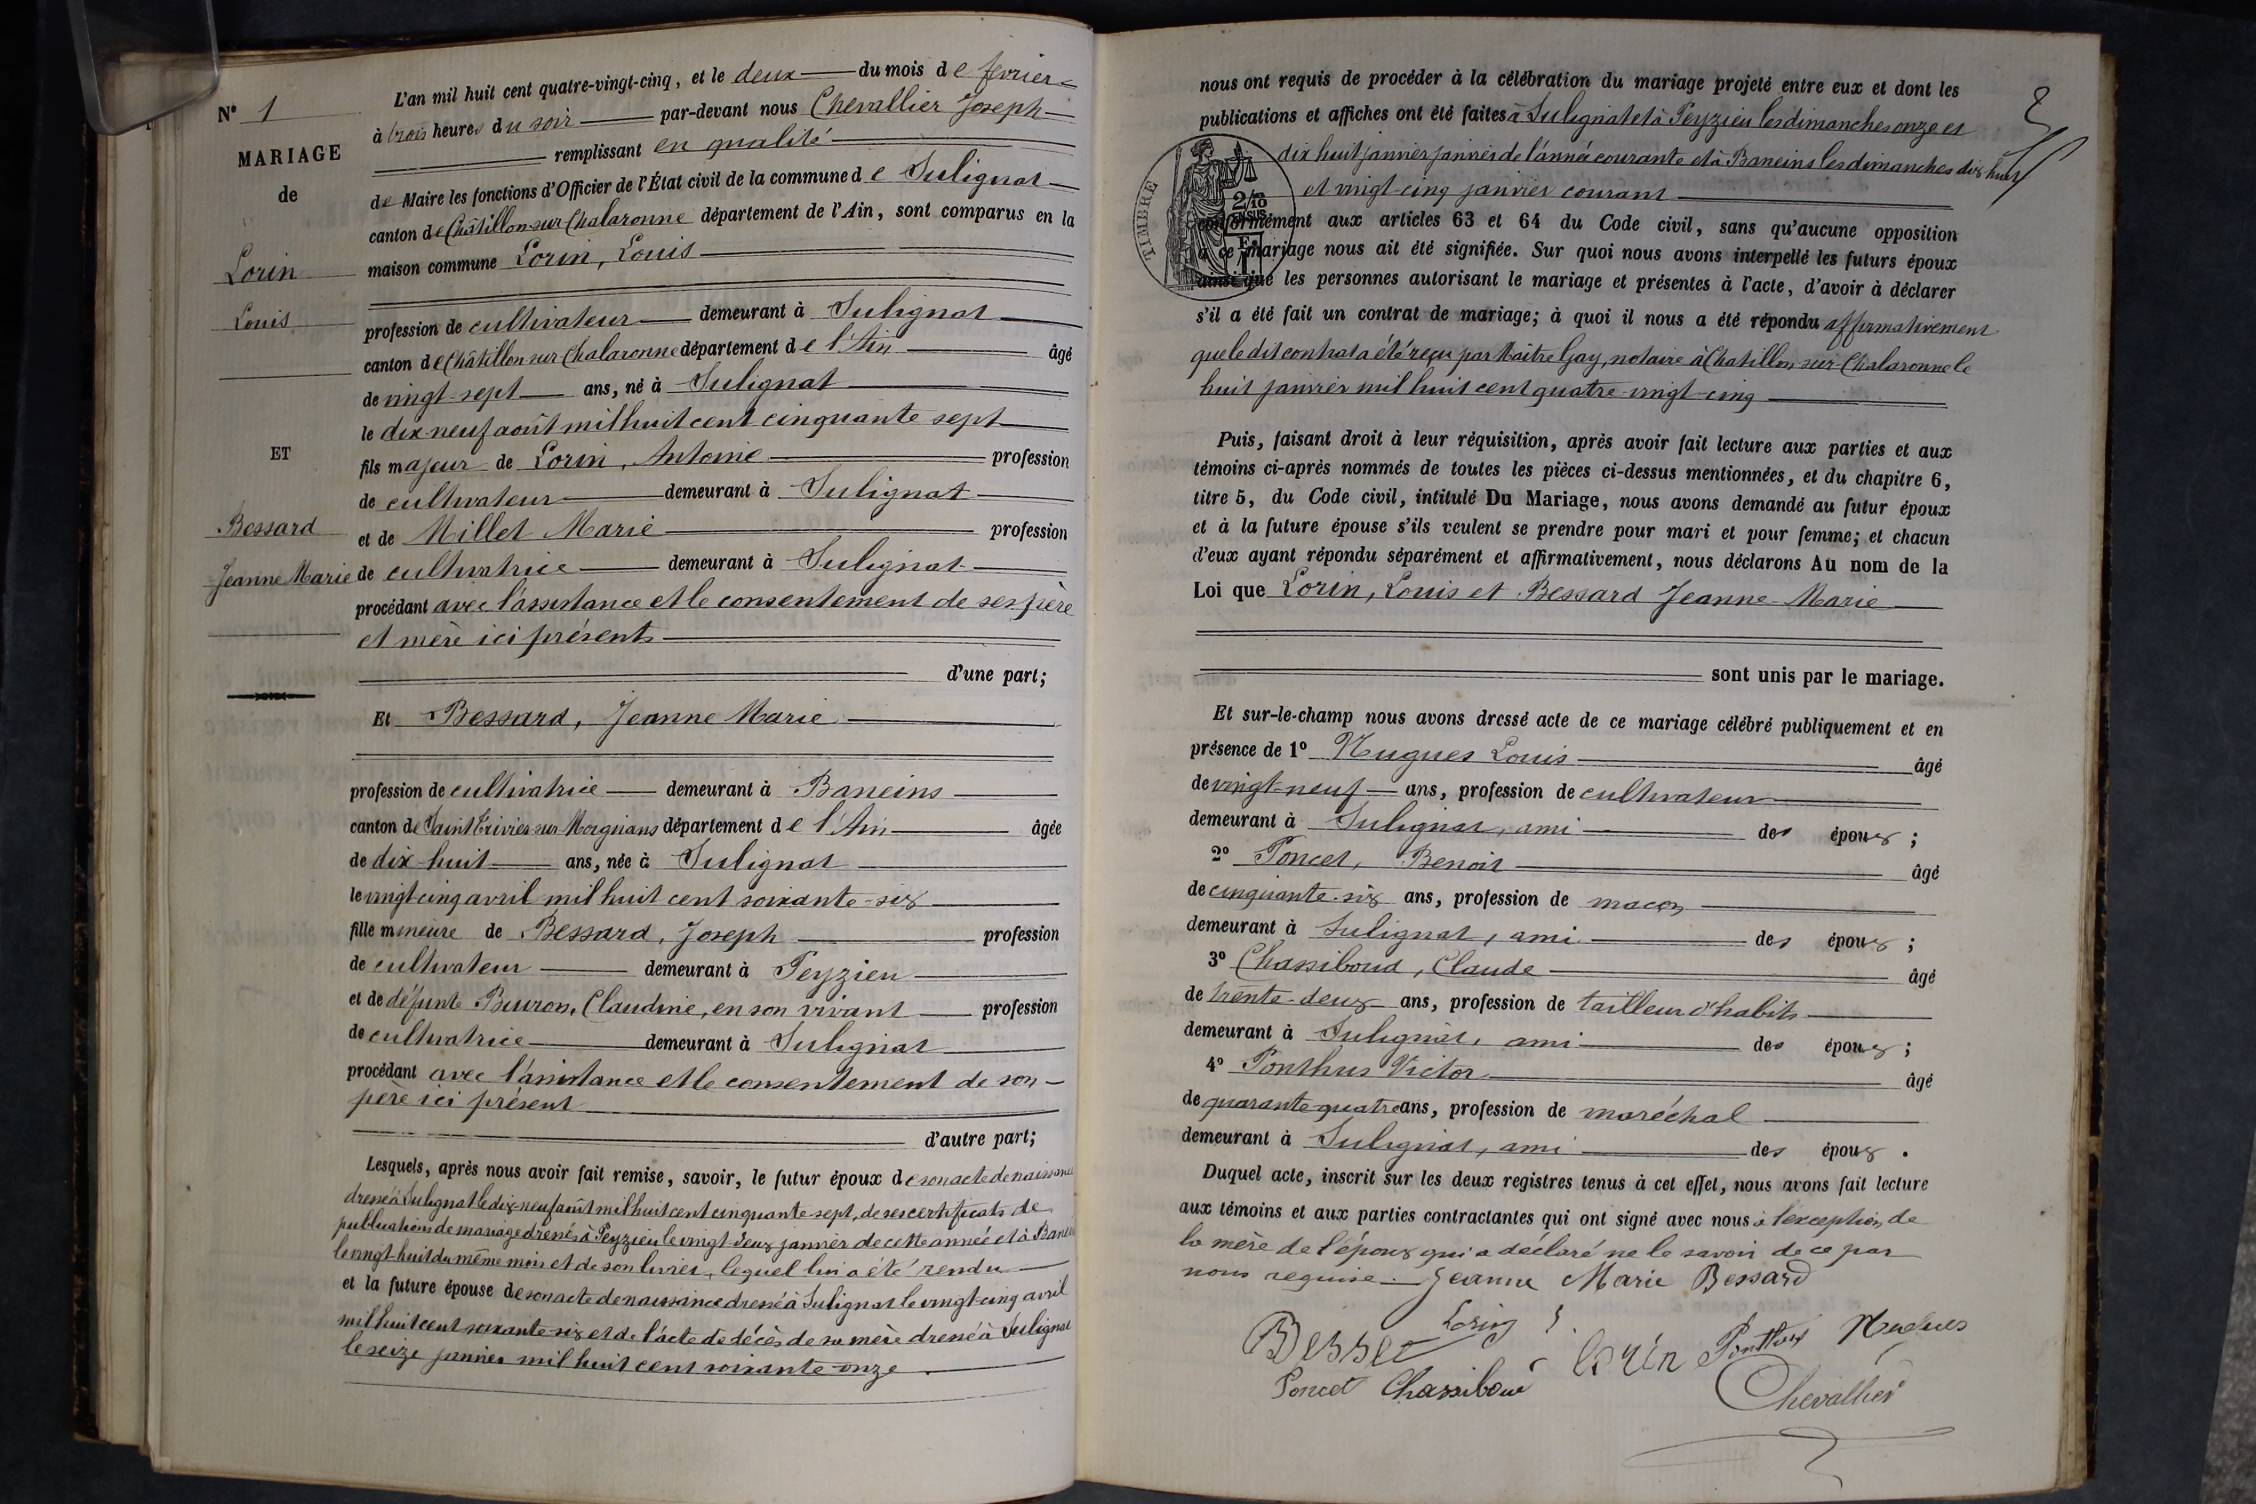 N° 1
MARIAGE
de
Lorin
Louis
ET
Bessard
Jeanne Marie
L'an mil huit cent quatre-vingt-cinq, et le deux du mois de fevrier
à trois heures du soir par-devant nous Chevallier Joseph
remplissant en qualité
de Maire les fonctions d'Officier de l'État civil de la commune de Sulignat
canton de Châtillon-sur-Chalaronne département de l'Ain, sont comparus en la
maison commune Lorin, Louis
profession de cultivateur demeurant à Sulignat
canton de Châtillon sur Chalaronne département de l'Ain âgé
de vingt-sept ans, né à Sulignat
le dix neuf août mil huit cent cinquante sept
fils majeur de Lorin, Antoine profession
de cultivateur demeurant à Sulignat
et de Millet Marie profession
de cultivatrice demeurant à Sulignat
procédant avec l'assistance et le consentement de ses père
et mère ici présents
d'une part;
Et Bessard, Jeanne Marie
profession de cultivatrice demeurant à Baneins
canton de Saint Trivier sur Moignans département de l'Ain âgée
de dix-huit ans, née à Sulignat
le vingt-cinq avril mil huit cent soixante-six
fille mineure de Bessard, Joseph profession
de cultivateur demeurant à Peyzieu
et de défunte Buiron, Claudine, en son vivant profession
de cultivatrice demeurant à Sulignat
procédant avec l'assistance et le consentement de son
père ici présent
d'autre part;
Lesquels, après nous avoir fait remise, savoir, le futur époux de son acte de naissance
dressé à Sulignat le dix-neuf août mil huit cent cinquante-sept, de ses certificats de
publications de mariage dressés à Peyzieu le vingt-deux janvier de cette année et à
le vingt-huit du même mois et de son livret, lequel lui a été rendu
et la future épouse de son acte de naissance dressé à Sulignat le vingt-cinq avril
mil huit cent soixante-six et de l'acte de décès de sa mère dressé à Sulignat
le seize janvier mil huit cent soixante-onze.
nous ont requis de procéder à la célébration du mariage projeté entre eux et dont les
publications et affiches ont été faites à Sulignat et à Peyzieu les dimanches onze et
dix huit janvier janvier de l'année courante et à Baneins les dimanches dix huit
et vingt-cinq janvier courant
TIMBRE
2/10
EN SUS
conformément aux articles 63 et 64 du Code civil, sans qu'aucune opposition
à ce mariage nous ait été signifiée. Sur quoi nous avons interpellé les futurs époux
ainsi que les personnes autorisant le mariage et présentes à l'acte, d'avoir à déclarer
s'il a été fait un contrat de mariage; à quoi il nous a été répondu affirmativement
que le dit contrat a été reçu par Maître Gay, notaire à Chatillon-sur-Chalaronne le
huit janvier mil huit cent quatre-vingt-cinq
Puis, faisant droit à leur réquisition, après avoir fait lecture aux parties et aux
témoins ci-après nommés de toutes les pièces ci-dessus mentionnées, et du chapitre 6,
titre 5, du Code civil, intitulé Du Mariage, nous avons demandé au futur époux
et à la future épouse s'ils veulent se prendre pour mari et pour femme; et chacun
d'eux ayant répondu séparément et affirmativement, nous déclarons Au nom de la
Loi que Lorin, Louis et Bessard Jeanne-Marie
sont unis par le mariage.
Et sur-le-champ nous avons dressé acte de ce mariage célébré publiquement et en
présence de 1° Nugues Louis âgé
de vingt-neuf ans, profession de cultivateur
demeurant à Sulignat, ami des époux;
2° Poncet, Benoit âgé
de cinquante-six ans, profession de maçon
demeurant à Sulignat, ami des époux;
3° Chassiboud, Claude âgé
de trente-deux ans, profession de tailleur d'habits
demeurant à Sulignat, ami des époux;
4° Ponthus Victor âgé
de quarante-quatre ans, profession de maréchal
demeurant à Sulignat, ami des époux.
Duquel acte, inscrit sur les deux registres tenus à cet effet, nous avons fait lecture
aux témoins et aux parties contractantes qui ont signé avec nous à l'exception de
la mère de l'époux qui a déclaré ne le savoir de ce par
nous requise. Jeanne Marie Bessard
Lorin Lorin Ponthus Nugues
Poncet Chassiboud Chevallier